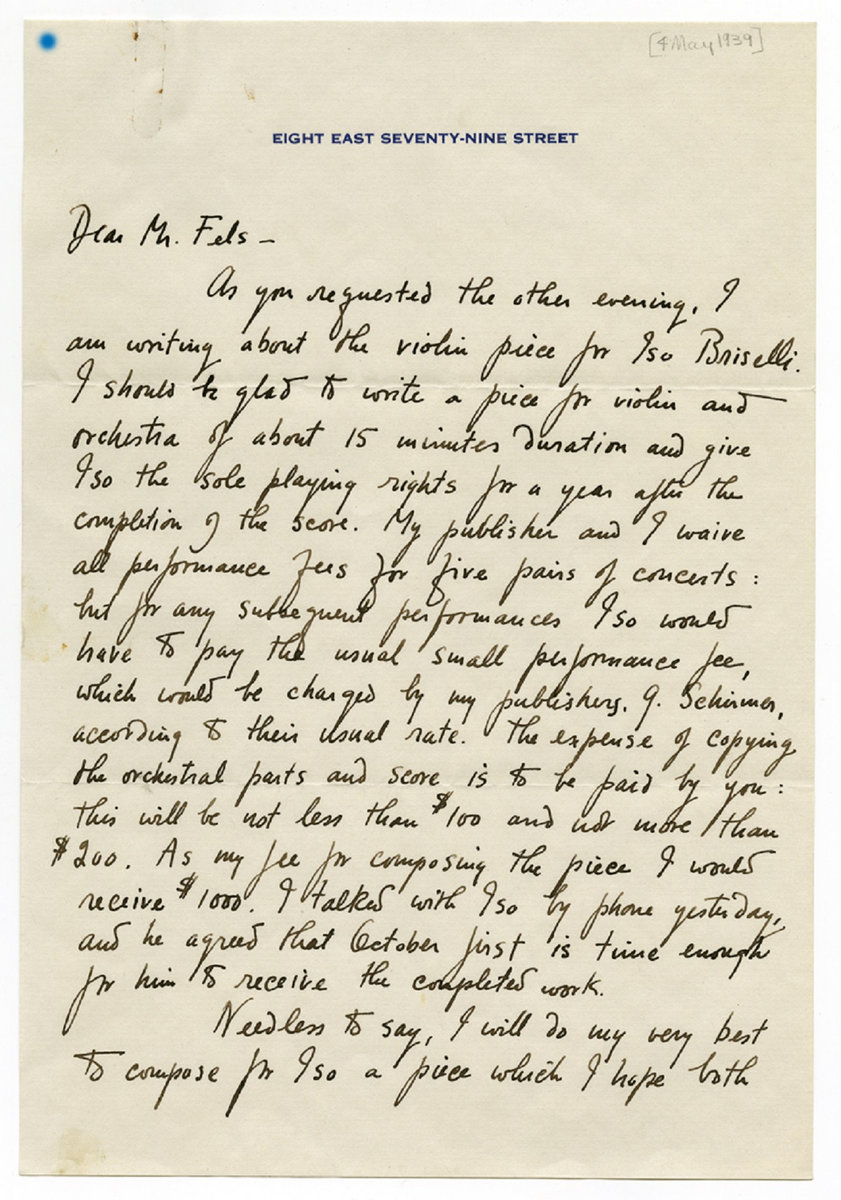 [4 May 1939]
EIGHT EAST SEVENTY-NINE STREET
Dear Mr. Fels –
As you requested the other evening, I
am writing about the violin piece for Iso Briselli.
I should be glad to write a piece for violin and
orchestra of about 15 minutes duration and give
Iso the sole playing rights for a year after the
completion of the score. My publisher and I waive
all performance fees for five pairs of concerts :
but for any subsequent performances Iso would
have to pay the usual small performance fee,
which would be charged by my publishers, G. Schirmer,
according to their usual rate. The expense of copying
the orchestral parts and score is to be paid by you :
this will be not less than $100 and not more than
$200. As my fee for composing the piece I would
receive $1000. I talked with Iso by phone yesterday,
and he agreed that October first is time enough
for him to receive the completed work.
Needless to say, I will do my very best
to compose for Iso a piece which I hope both